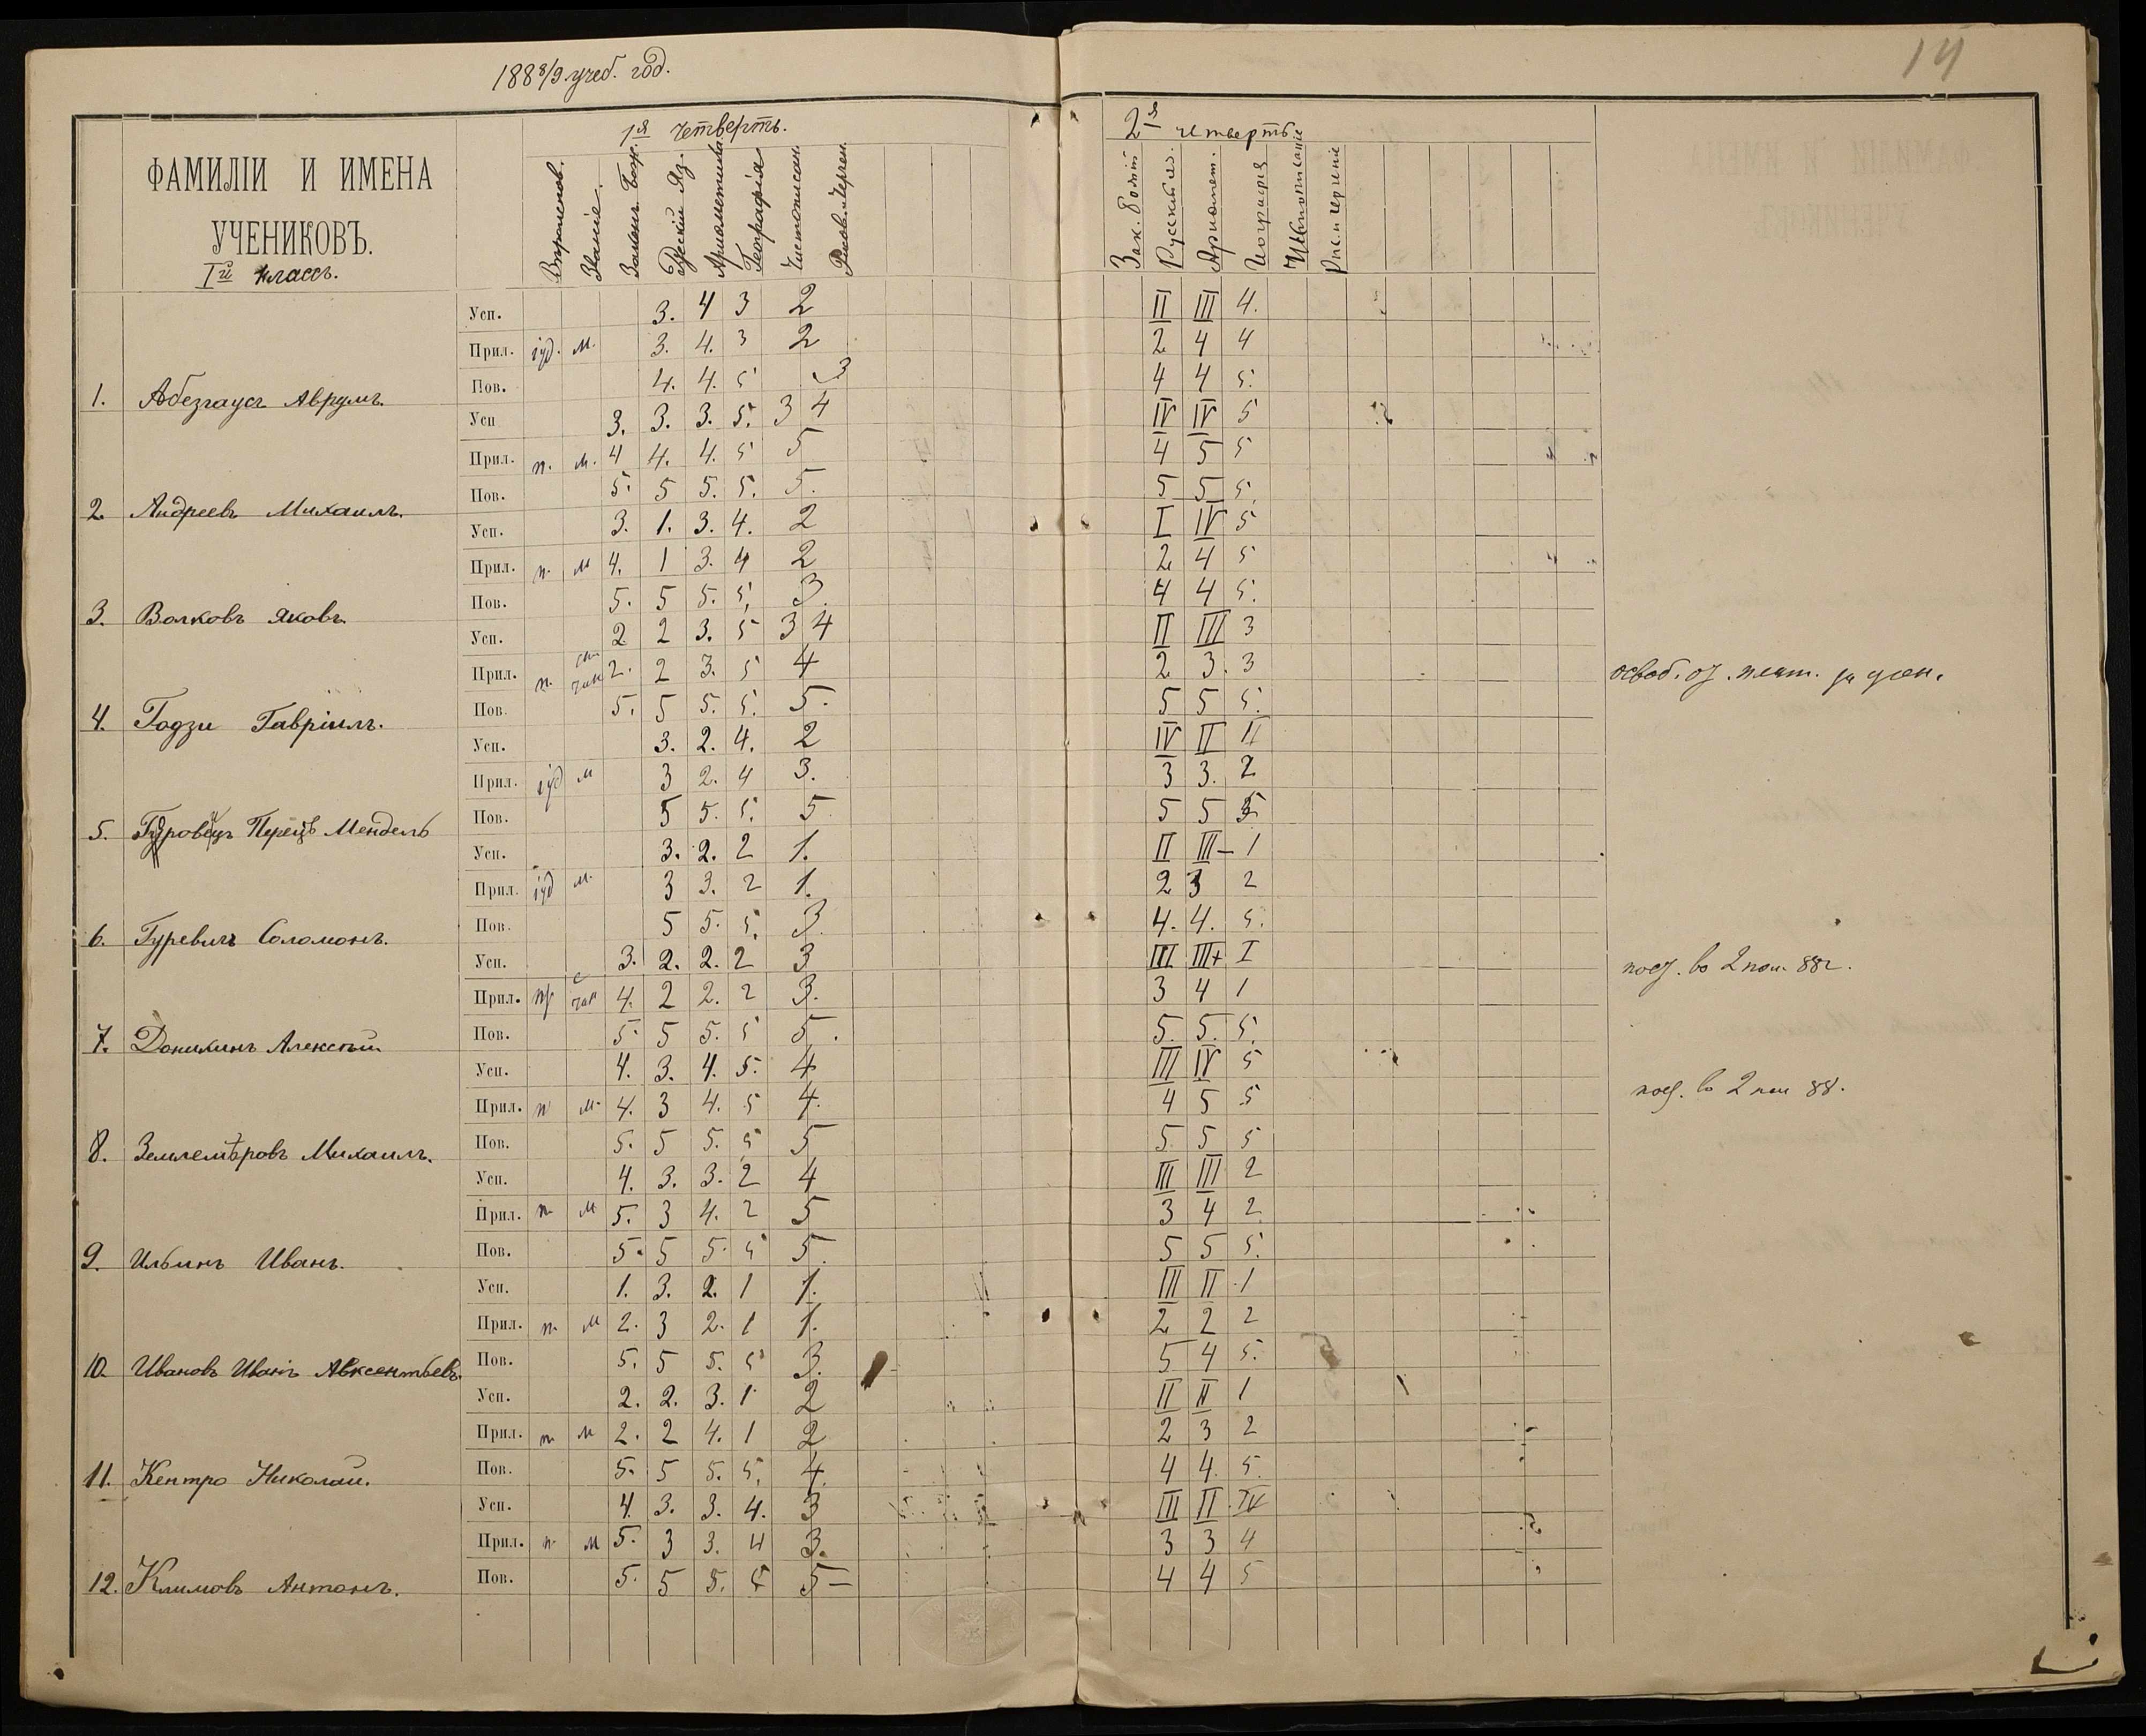 1888/9 учеб. год.
14
ФАМИЛІИ И ИМЕНА
УЧЕНИКОВЪ.
Iй классъ.
1я четверть.
Вѣроисповѣд.
Званіе.
Законъ Бож.
Русскій Яз.
Ариѳметика.
Географія
Чистописан.
Рисов. и Черчен.
2я четверть
Зак. Божій
Русскій яз.
Ариѳмет.
Географія
Чистописаніе
Рис. и черченіе
1. Абезгаусъ Аврумъ.
Усп. 3. 4 3 2 II III 4.
Прил. іуд. м. 3. 4. 3 2 2 4 4
Пов. 4. 4. 5 3 4 4 5.
2. Андреевъ Михаилъ.
Усп 3. 3. 3. 5. 3 4 IV IV 5
Прил. п. м. 4 4. 4. 5 5 4 5 5
Пов. 5. 5 5. 5. 5. 5 5 5.
3. Волковъ Яковъ.
Усп. 3. 1. 3. 4. 2 I IV 5
Прил. п. м 4. 1 3. 4 2 2 4 5
Пов. 5. 5 5. 5. 3. 4 4 5.
4. Годзи Гавріилъ.
Усп. 2 2 3. 5 3 4 II III 3
Прил. п. 2. 2 3. 5 4 2 3. 3 освоб. от. плат. за учен.
Пов. 5. 5 5. 5. 5. 5 5 5.
5. Перецъ Мендель
Усп. 3. 2. 4. 2 IV II II
Прил. іуд м 3 2. 4 3. 3 3. 2
Пов. 5 5. 5. 5 5 5 5
6. Гуревичъ Соломонъ.
Усп. 3. 2. 2 1. II III– 1
Прил. іуд м. 3 3. 2 1. 2 3 2
Пов. 5 5. 5. 3. 4. 4. 5.
7. Доникинъ Алексѣй
Усп. 3. 2. 2. 2 3 III III+ I пост. во 2 пол. 88 г.
Прил. 4. 2 2. 2 3. 3 4 1
Пов. 5. 5 5. 5 5. 5. 5. 5.
8. Землемѣровъ Михаилъ.
Усп. 4. 3. 4. 5. 4 III IV 5
Прил. п м. 4. 3 4. 5 4. 4 5 5 пост. во 2 пол 88.
Пов. 5. 5 5. 5 5 5 5 5
9. Ильинъ Иванъ.
Усп. 4. 3. 3. 2 4 III III 2
Прил. п. м 5. 3 4. 2 5 3 4 2.
Пов. 5. 5 5. 5 5. 5 5 5.
10. Ивановъ Иванъ Авксентьевъ.
Усп. 1. 3. 2. 1 1. III II 1
Прил. п. м 2. 3 2. 1 1. 2 2 2
Пов. 5. 5 5. 5 3. 5 4 5.
11. Кентро Николай.
Усп. 2. 2. 3. 1 2 II II 1
Прил. п. м 2. 2 4. 1 2 2 3 2
Пов. 5. 5 5. 5. 4. 4 4. 5.
12. Климовъ Антонъ.
Усп. 4. 3. 3. 4. 3 III II IV
Прил. п. м 5. 3 3. 4 3. 3 3 4
Пов. 5. 5 5. 5 5– 4 4 5